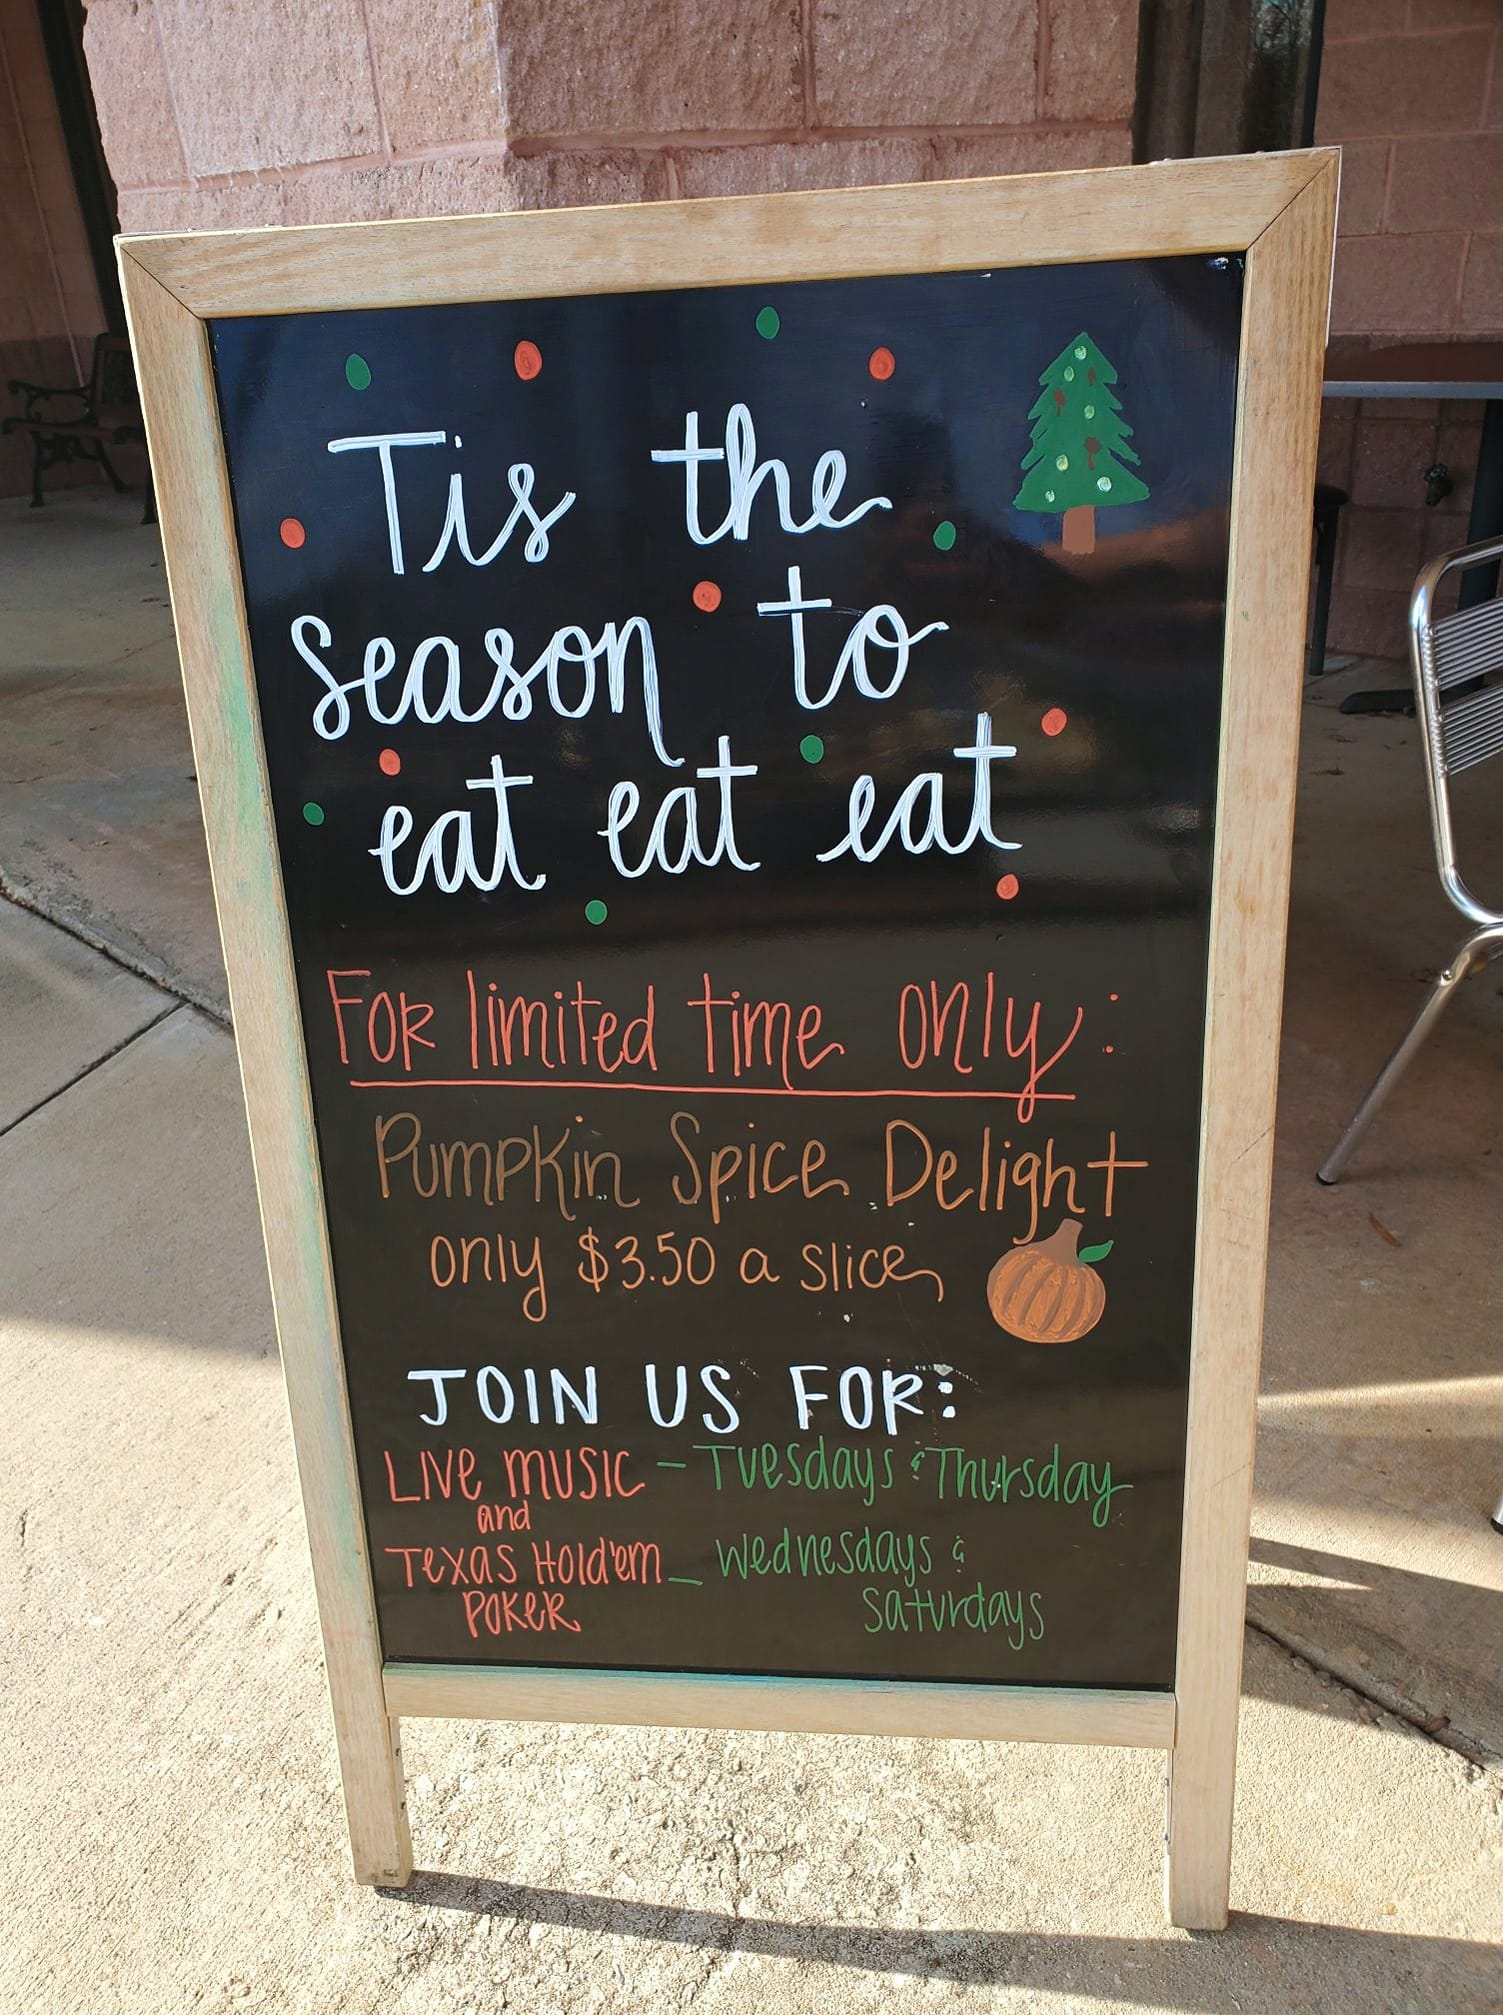 Tis the
season to
eat eat eat
For limited time only:
Pumpkin Spice Delight
only $3.50 a slice
JOIN US FOR:
Live music - Tuesdays & Thursday
and
Texas Hold'em - Wednesdays &
Poker Saturdays